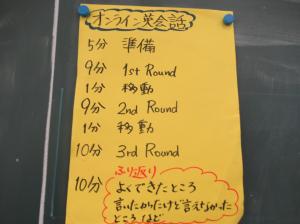 オンライン英会話
5分 準備
9分 1st Round
1分 移動
9分 2nd Round
1分 移動
10分 3rd Round
ふり返り
10分 よくできたところ
言いたかったけど言えなかった
ところ など